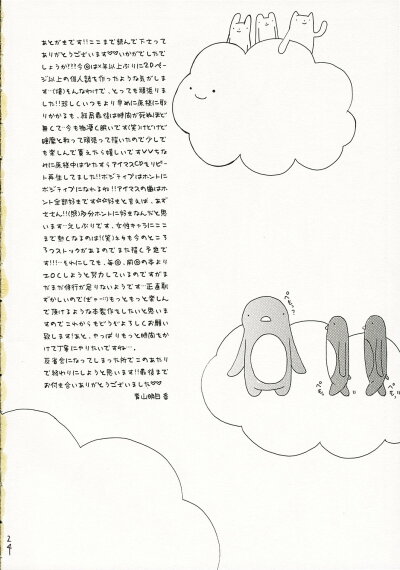 あとがきです!!ここまで読んで下さって
ありがとうございます♡♡いかがでしたで
しょうか!!!今回は×年以上ぶりに20ペー
ジ以上の個人誌を作ったような気がしま
す…(嬉)そんなわけで、とっても頑張りま
した!!珍しくいつもより早めに原稿に取り
かかるも、結局最後は時間が死ぬほど
無くて…今も物凄く眠いです(笑)けどけど
睡魔と戦って頑張って描いたので少しで
も楽しんで貰えたら嬉しいですVVちな
みに原稿中はひたすらアイマスCDをリピー
ト再生してました!!ポジティブはホントに
ポジティブになれるね!!アイマスの曲はホ
ント全部好きです
好きと言えば、あず
ささん!!(照)多分ホントに好きなんだと思
います…久しぶりです、女性キャラにここ
まで熱くなるのは!(笑)ネタも今のところ
2つストックがあるのでまた描く予定で
す!!!…それにしても、毎回、前回の本より
エロくしようと努力しているのですがま
だまだ修行が足りないようです…正直恥
ずかしいのでもっともっと楽しん
で頂けるような本製作をしたいと思いま
すのでこれからもどうぞよろしくお願い
致します!あと、やっぱりもっと時間をか
けて丁寧にやりたいですね…。
反省会になってしまった所でこのあたり
で終わりにしようと思います!!最後まで
お付き合いありがとうございました♡♡
青山明日香
24